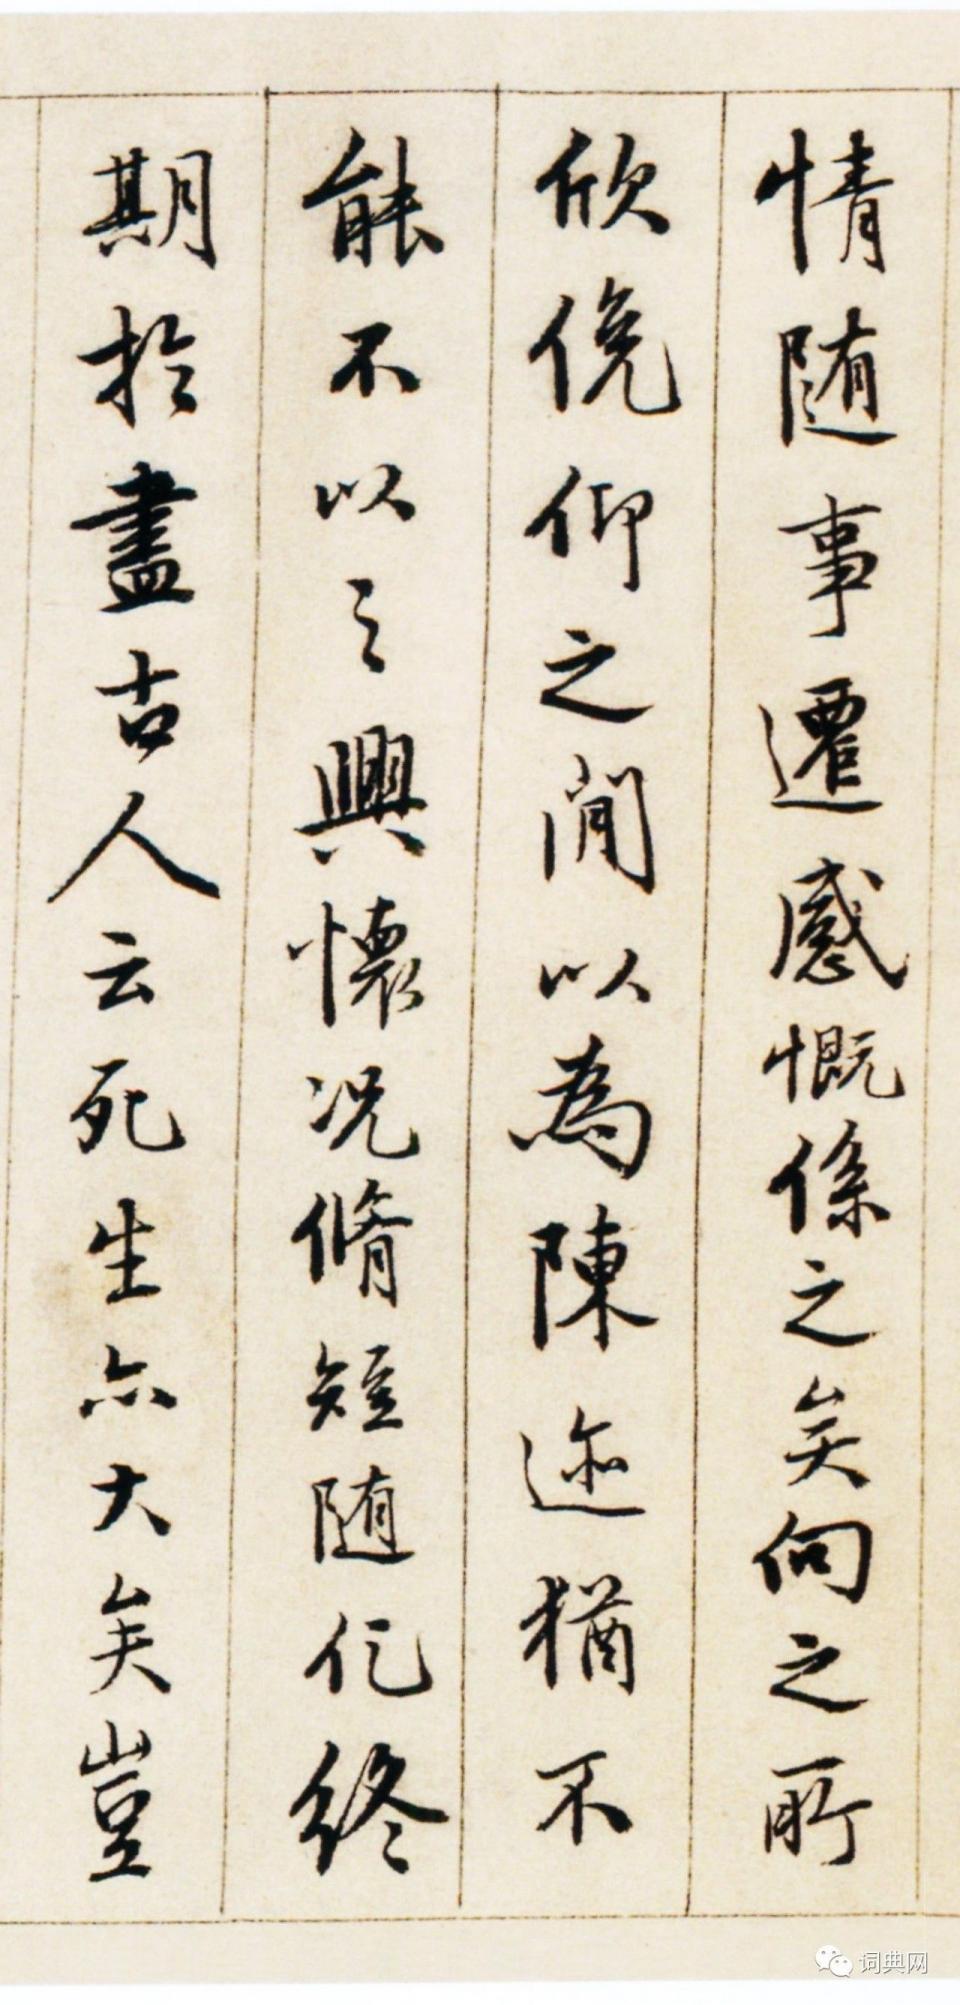 情随事遷感慨係之矣向之所
欣俛仰之閒以為陳迹猶不
能不以之興懷况脩短随化終
期於盡古人云死生亦大矣豈
词典网